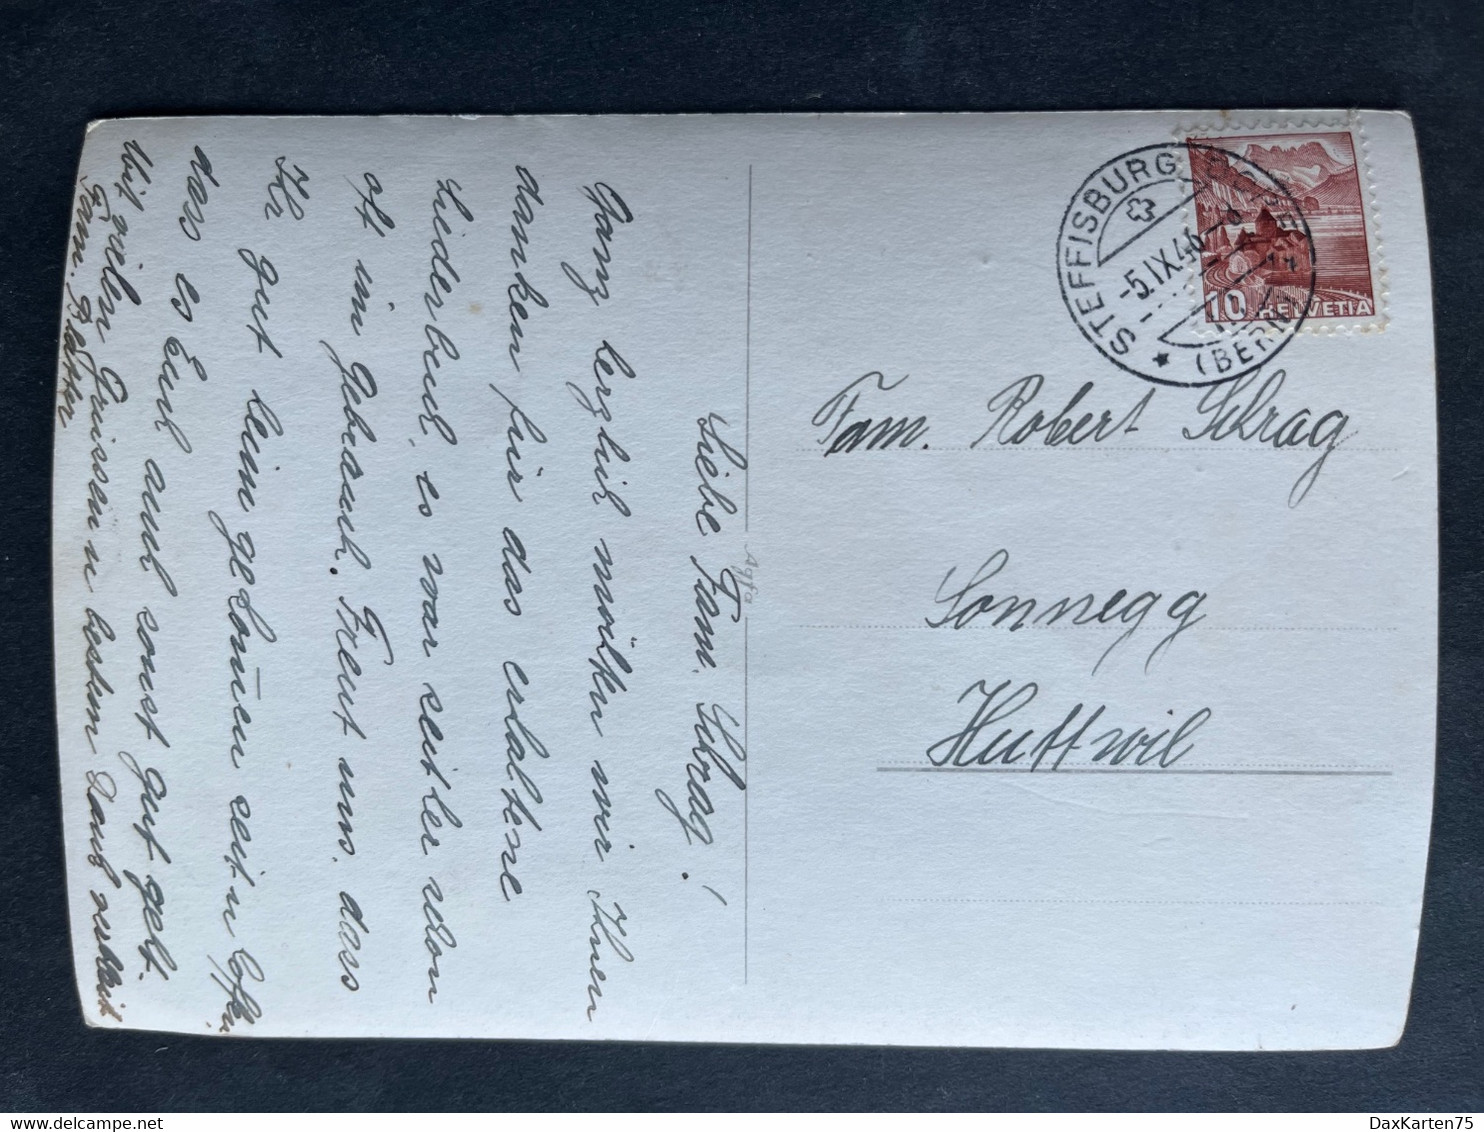 Liebe Fam. Schrag!
Ganz herzlich möchten wir Ihnen
danken für das erhaltene
Liederbuch, es war seither schon
oft im Gebrauch. Freut uns, dass
Ihr gut heim gekom̅en seit u hoffen
das es Euch auch sonst gut geht.
Mit vielen Grüssen u bestem Dank verbleibt
Fam.
STEFFISBURG
-5.IX.46-
(BERN)
10 HELVETIA
Fam. Robert Schrag
Sonnegg
Huttwil
Agfa
DaxKarten75